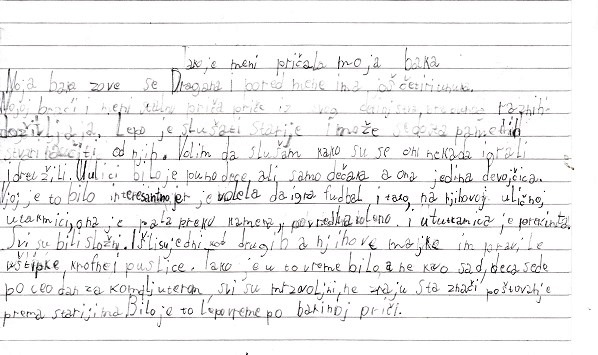 Tako je meni pričala moja baka
Moja baka zove se Dragana i pored mene ima još četiri unuka.
Mojoj braći i meni priča priče iz svog detinjstva, raznih
doživljaja. Lepo je slušati starije i može se od pametnih
stvari naučiti od njih. Volim da slušam kako su se oni nekada igrali
i družili. U ulici bilo je pouno dece, ali samo dečaka a ona jedina devojčica.
Njoj je to bilo interesantno jer je volela da igra fudbal, i tako, na njihovoj ulično,
utakmici, ona je pala preko kamena, povredila koleno. i utakmica je prekinuta.
Svi su bili složni. Išli su jedni kod drugih a njihove majke im pravile
uštipke, krofne i puslice. Tako je u to vreme bilo, a ne kao sad, deca sede
po ceo dan za kompjuterom, svi su mrzovoljni, ne znaju šta znači poštovanje
prema starijima. Bilo je to lepo vreme po bakinoj priči.